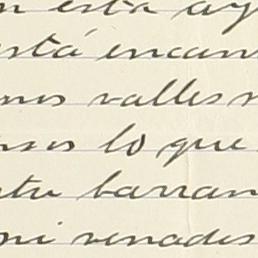 n esta ay
está encan
nos valles n
sos lo que
tu barran
ni venados